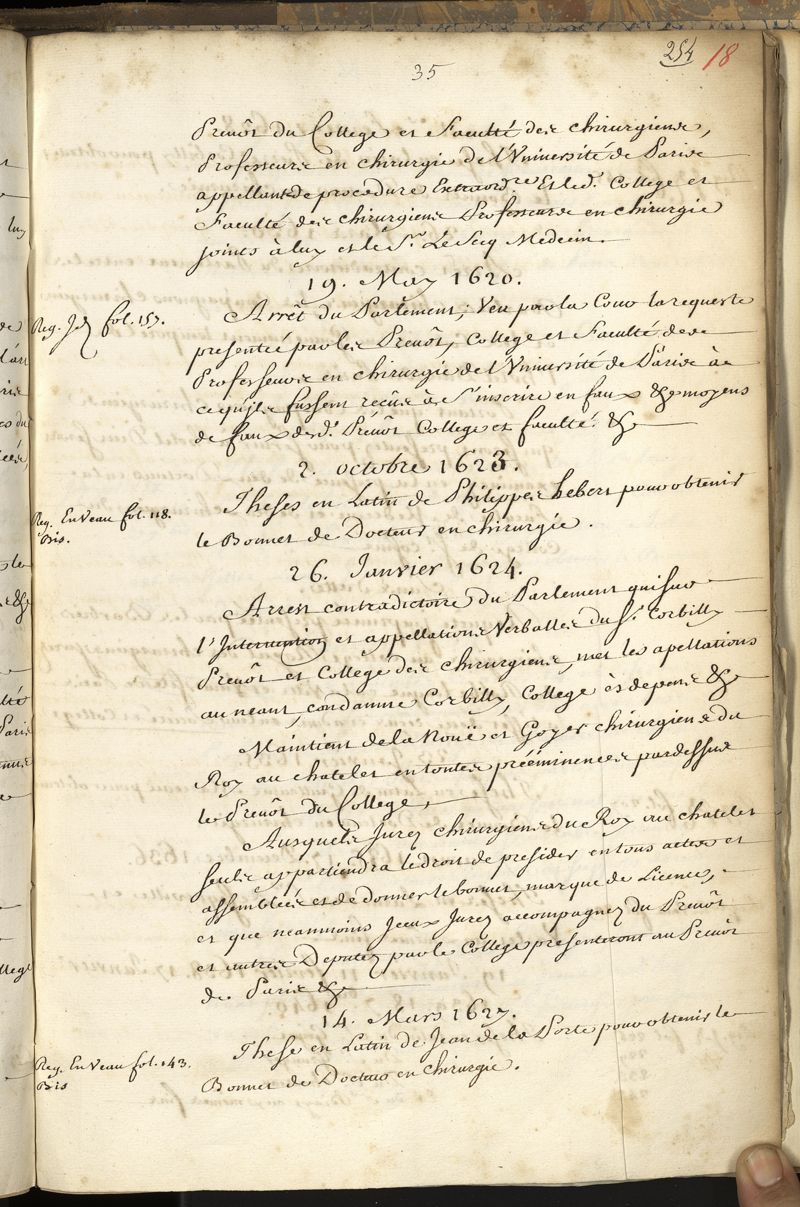 35
254 18
Prevôt du College et Faculté des chirurgiens,
Professeurs en chirurgie de l'Université de Paris
appellants de procedure Extraord.re Et led. College et
Faculté des chirurgiens Professeurs en chirurgie
joints à luy et le S.r Le Secq Medecin.
19. May 1620.
Reg. fol. 157.
Arrêt du Parlement; Veu par la Cour la requeste
presentée par les Prevôt, College et Faculté des
Professeurs en chirurgie de l'Université de Paris à
ce qu'ils fussent recûs à s'inscrire en faux &c moyens
de faux desd. Prévôt College et faculté. &c
2. octobre 1623.
Reg. En Veau fol. 118.
Bis.
Theses en Latin de Philippes hebert pour obtenir
le Bonnet de Docteur en chirurgie.
26. Janvier 1624.
Arrest contradictoire du Parlement qui sur
l'Interruption et appellations Verballes du S.r Corbilly
Prevôt et College des chirurgiens, met les apellations
au neant, condamne Corbilly, College ès depens &c
Maintient de la Nouë et Goyer chirurgiens du
Roy au chatelet en toutes prééminences pardessus
le Prevôt du College,
Ausquels Jurez chirurgiens du Roy au chatelet
seuls appartiendra le droit de presider en tous actes et
assemblées et de donner le bonnet, marque de Licence,
et que neanmoins Iceux Jurez accompagnez du Prevôt
et autres Deputez par le College presenteront au Prevôt
de Paris &c
14. Mars 1627.
Reg. En Veau fol. 143.
Bis
These en Latin de Jean de la Porte pour obtenir le
Bonnet de Docteur en chirurgie.